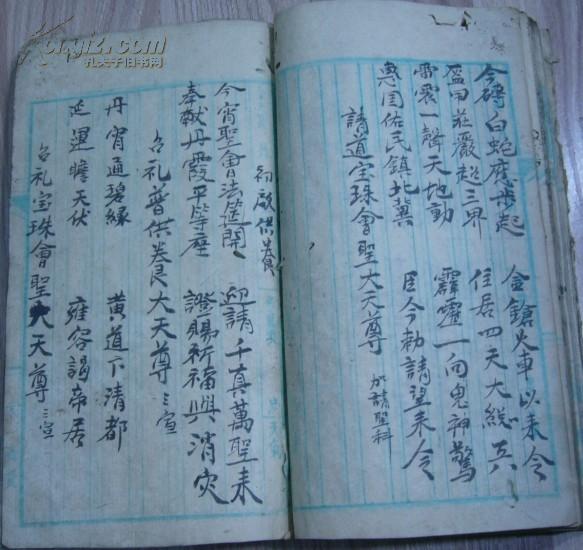 今磚白蛇應步起 金鎗火車以來令
盔甲莊嚴超三界 住居四天大總兵
雷震一聲天地動 霹靂一向鬼神驚
惠国佑民鎮北冀 臣今勅請望來令
請道宝珠會聖大天尊 加請聖科
初啟供養
今宵聖會法筵開 迎請千真萬聖來
奉献丹霞平等座 證賜祈福與消灾
台礼普供养大天尊 三宣
丹宵通碧緑 黄道下清都
延遲瞻天伏 雍容謁帝居
台礼宝珠會聖大天尊 三宣
kongfz.com
孔夫子旧书网